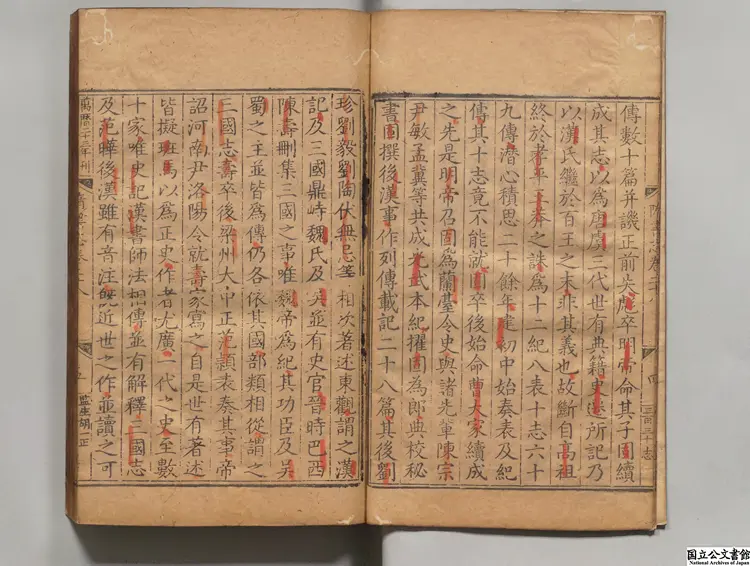 傳數十篇并譏正前失彪卒明帝命其子固續
成其志以為唐虞三代世有典籍史遷所記乃
以漢氏繼於百王之末非其義也故斷自高祖
終於孝平王莽之誅為十二紀八表十志六十
九傳潛心積思二十餘年建初中始奏表及紀
傳其十志竟不能就固卒後始命曹大家續成
之先是明帝召固為蘭臺令史與諸先輩陳宗
尹敏孟冀等共成光武本紀擢固為郎典校秘
書固撰後漢事作列傳載記二十八篇其後劉
珍劉毅劉陶伏無忌等相次著述東觀謂之漢
記及三國鼎峙魏氏及吳並有史官晉時巴西
陳壽刪集三國之事唯魏帝為紀其功臣及吳
蜀之主並皆為傳仍各依其國部類相從謂之
三國志壽卒後梁州大中正范頵表奏其事帝
詔河南尹洛陽令就壽家寫之自是世有著述
皆擬班馬以為正史作者尤廣一代之史至數
十家唯史記漢書師法相傳並有解釋三國志
及范曄後漢雖有音注既近世之作並讀之可
萬曆二十三年刊
監生胡一正
国立公文書館
National Archives of Japan